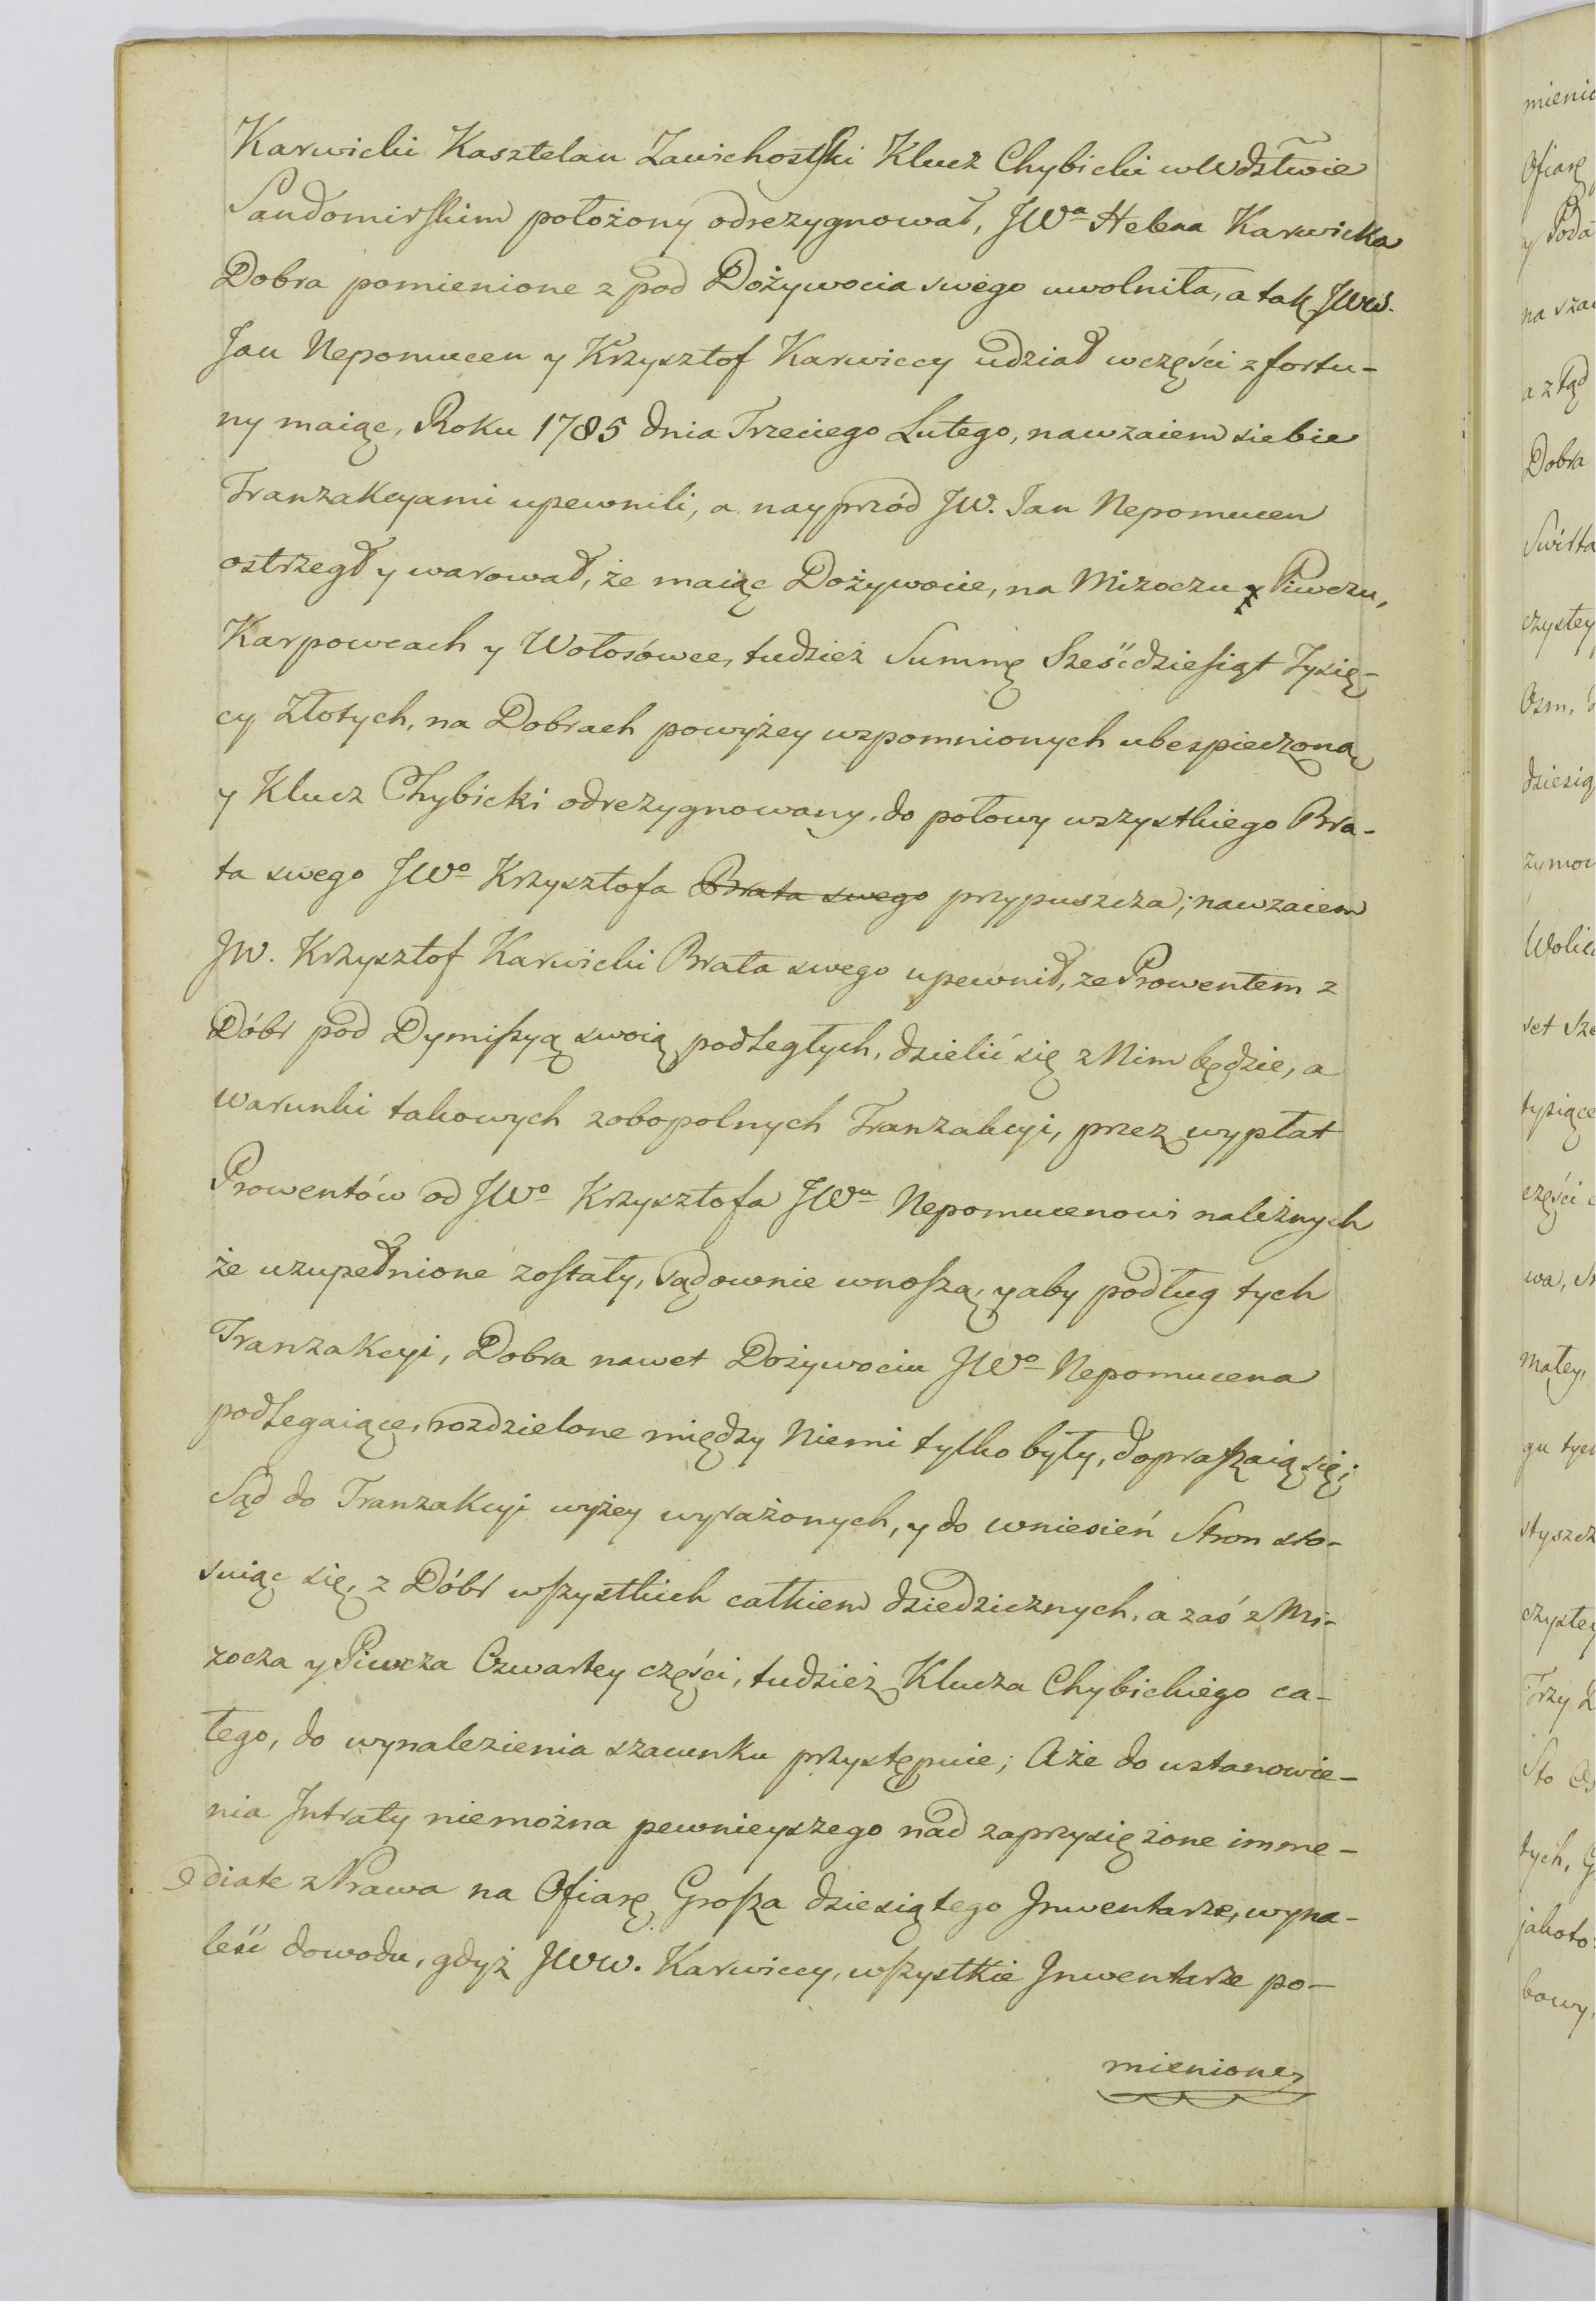 Karwicki Kasztelan Zawichostski Klucz Chybicki w Wdztwie
Sandomirskim położony odrezygnował, JWa Helena Karwicka
Dobra pomienione z pod Dożywocia swego uwolniła, a tak JWW.
Jan Nepomucen y Krzysztof Karwiccy udział w części z fortu-
ny maiąc, Roku 1785 dnia Trzeciego Lutego, nawzaiem siebie
Tranzakcyami upewnili, a nayprzód JW. Jan Nepomucen
ostrzegł y warował, że maiąc Dożywocie, na Mizoczu y Piwczu,
Karpowcach y Wołosówce, tudzież Summę Sześćdziesiąt Tysię-
cy Złotych, na Dobrach powyżey wspomnionych ubespieczoną
y Klucz Chybicki odrezygnowany, do połowy wszystkiego Bra-
ta swego JWo Krzysztofa Brata swego przypuszcza; nawzaiem
JW. Krzysztof Karwicki Brata swego upewnił, ze Prowentem z
Dóbr pod Dymissyą swoią podległych, dzielić się z Nim będzie, a
warunki takowych zobopolnych Tranzakcyi, przez wypłat
Prowentów od JWo Krzysztofa JWu Nepomucenowi należnych
że uzupełnione zostały, sądownie wnoszą, y aby podług tych
Tranzakcyi, Dobra nawet Dożywociu JWo Nepomucena
podlegaiące, rozdzielone między Niemi tylko były, dopraszaią się;
Sąd do Tranzakcyi wyżey wyrażonych, y do wniesień Stron sto-
suiąc się, z Dóbr wszystkich całkiem dziedzicznych, a zaś z Mi-
zocza y Piwcza Czwartey części, tudzież Klucza Chybickiego ca-
łego, do wynalezienia szacunku przystępuie; Aże do ustanowie-
nia Intraty niemożna pewnieyszego nad zaprzysiężone imme-
diate z Prawa na Ofiarę Grosza dziesiątego Inwentarze, wyna-
leść dowodu, gdyż JWW. Karwiccy, wszystkie Inwentarze po-
mienione,
mienio
Ofiarę
y Poda
na sza
a ztąd
Dobra
czystey
Osm,
dziesią
zymow
set Sze
tysiące
części
wa,
małey,
gu tych
czystey
Trzy
Sto
tych,
jakoto:
bowy,